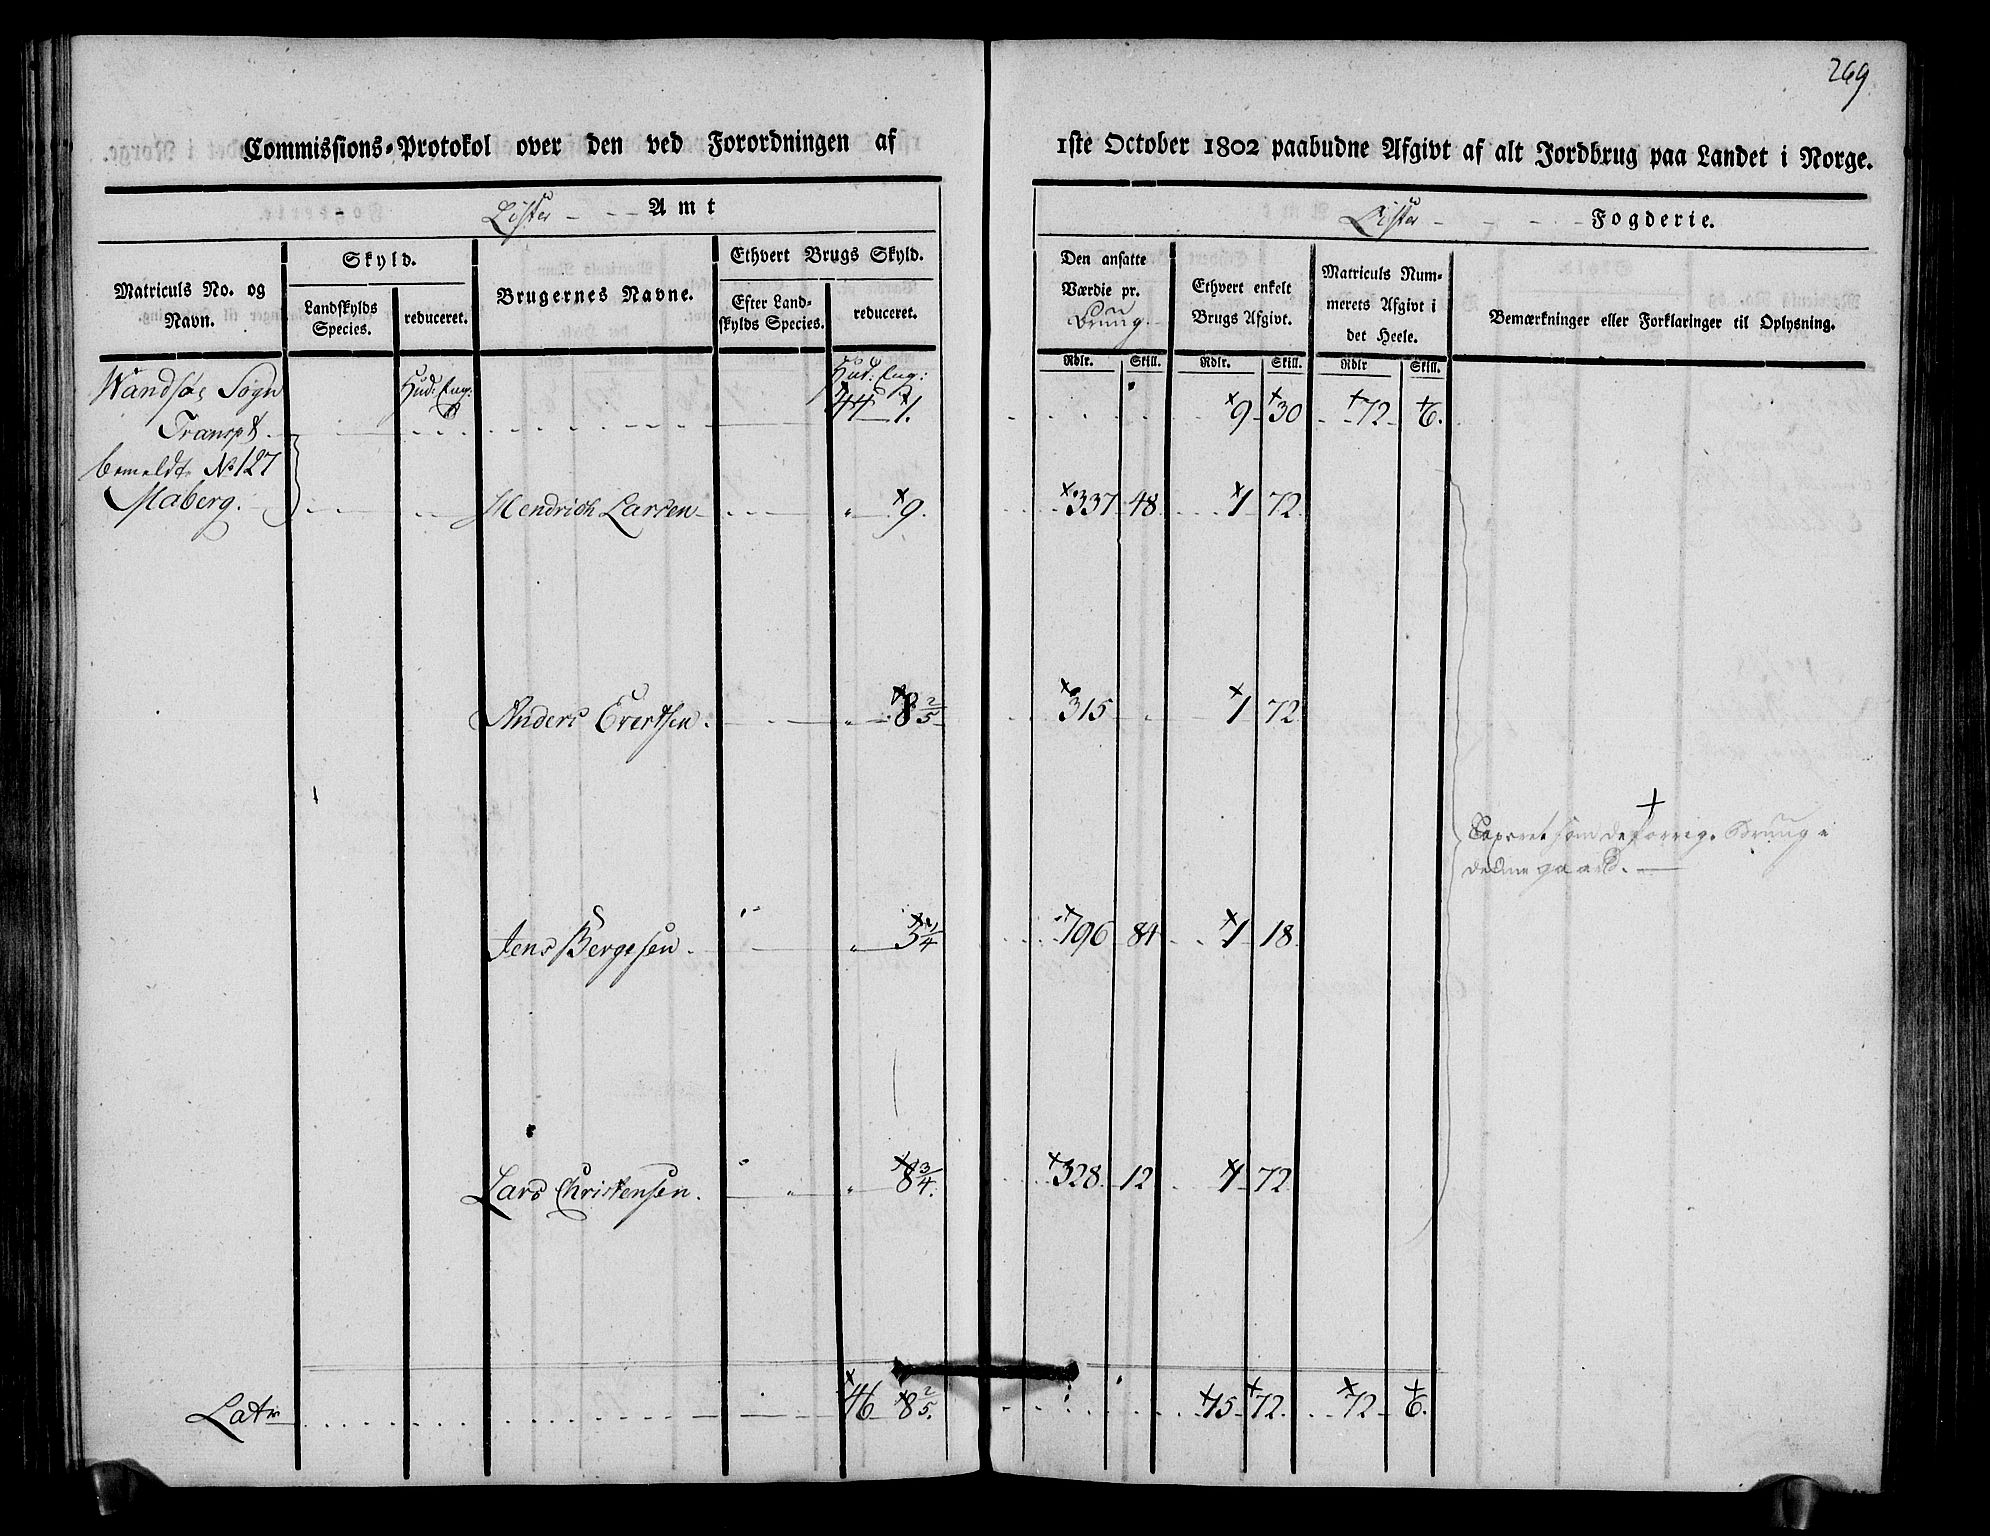 269
Commissions-Protokol over den ved Forordningen af 1ste October 1802 paabudne Afgivt af alt Jordbrug paa Landet i Norge.
Lister Amt Lister Fogderie.
Matriculs No. og Navn.
Skyld.
Landskylds Species.
reduceret.
Brugernes Navne.
Ethvert Brugs Skyld.
Efter Landskylds Species.
reduceret.
Den ansatte Værdie pr. Bruug.
Ethvert enkelt Brugs Afgivt.
Matriculs Nummerets Afgivt i det Heele.
Bemærkninger eller Forklaringer til Oplysning.
Rdlr. Skill. Rdlr. Skill. Rdlr Skill.
Hud: Eng: Hud: Eng:
Wandsøe Sogn
Transpt. 44 1. 9 30 72 6.
bemeldte No 127
Maberg. Hendrich Larsen 9. 337 48 1 72
Anders Evertsen. 8 2/5 315 1 72
Taxeret som de forrige Bruug i
denne gaard.
Jens Børgesen. 196 84 1 18
Lars Christensen. 8 3/4. 328 12 1 72
Latr 46 8 2/5. 15 72 72 6.